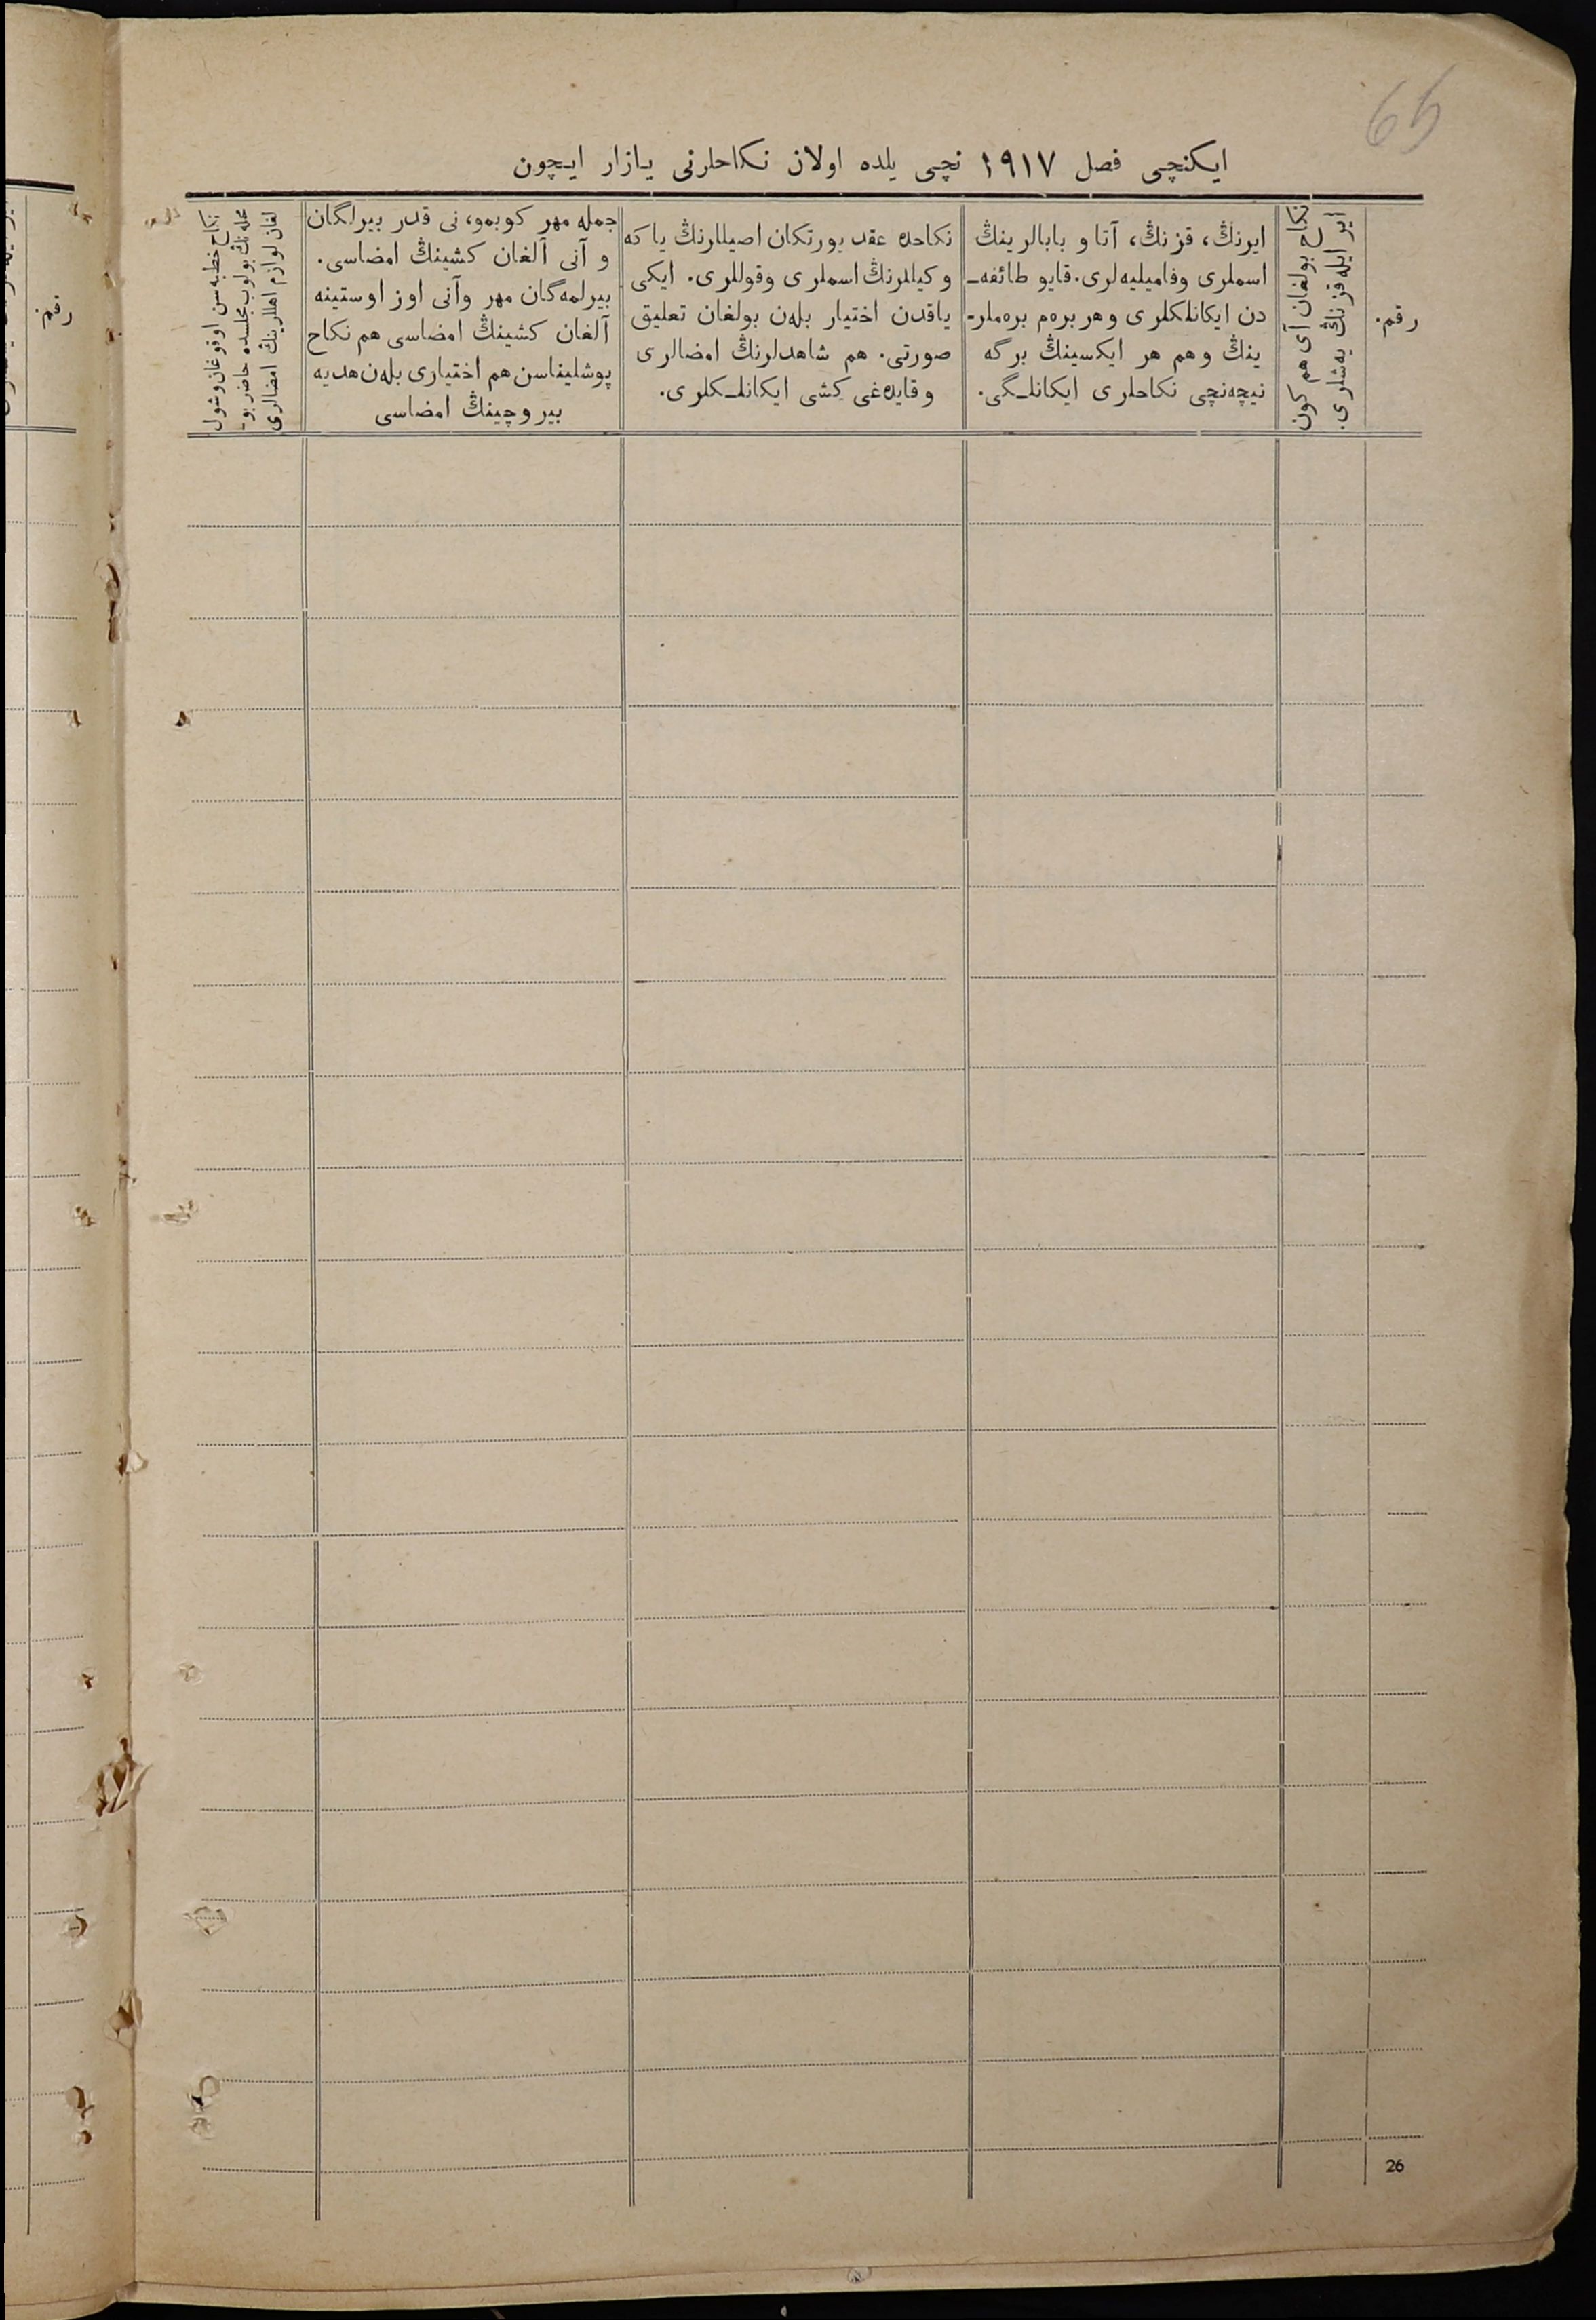 65
ایکنچی فصل ١٩١٧ نچی یلده اولان نکاحلرنی یازار ایچون
رقم.
نکاح بولغان آی هم کون
ایر ایله قزنڭ یه‌شلری.
ایرنڭ، قزنڭ، آتا و بابالرینڭ
اسملری وفامیلیه‌لری. قایو طائفه‌ـ
دن ایکانلکلری وهر بره‌م بره‌ملرـ
ینڭ وهم هر ایکسینڭ برگه
نیچه‌نچی نکاحلری ایکانلـگی.
نکاحده عقد یورتکان اصیللرنڭ یا که
وکیللرنڭ اسملری وقوللری. ایکی
یاقدن اختیار بله‌ن بولغان تعلیق
صورتی. هم شاهدلرنڭ امضالری
وقایده‌غی کشی ایکانلـکلری.
جمله مهر کوبمو، نی قدر بیرلگان
و آنی آلغان کشینڭ امضاسی.
بیرلمه‌گان مهر وآنی اوز اوستینه
آلغان کشینڭ امضاسی هم نکاح
پوشلیناسن هم اختیاری بله‌ن هدیه
بیروچینڭ امضاسی
نکاح خطبه‌سن اوقوغان وشول
محله‌نڭ بولوب مجلسده حاضر بوـ
لغان لوازم اهللرینڭ امضالری
26
رقم.